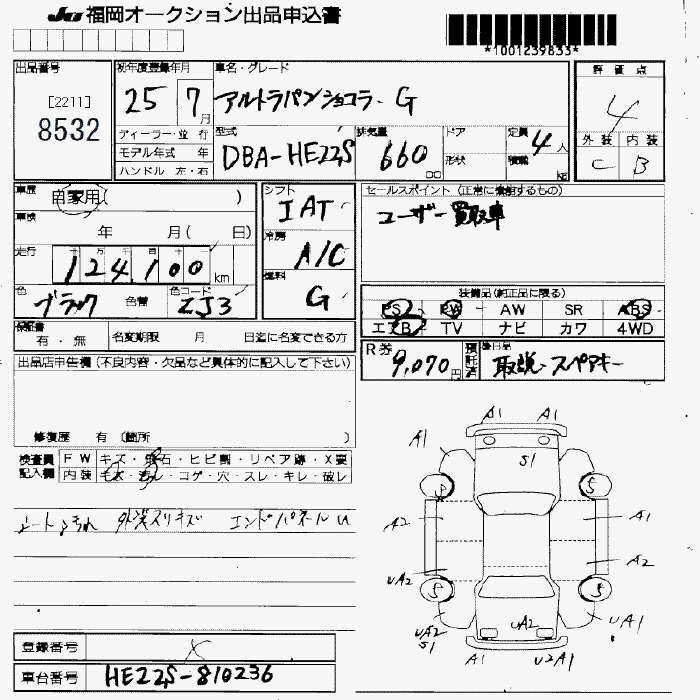 JU 福岡オークション出品申込書
*1001239833*
出品番号
[2211]
8532
初年度登録年月
25 7月
車名・グレード
アルトラパンショコラ G
評価点
4
外装 内装
C B
ディーラー・並行
モデル年式 年
ハンドル 左・右
型式
DBA-HE22S
排気量
660 cc
ドア
形状
定員
4人
積載
kg
車歴
自家用( )
車検
年 月( 日)
走行
十 万 千 百 十
124,100 km
色
ブラック
色替
色コード
ZJ3
シフト
IAT
冷房
A/C
燃料
G
セールスポイント (正常に機能するもの)
ユーザー買取車
装備品(純正品に限る)
PS PW AW SR ABS
エアB TV ナビ カワ 4WD
保証書
有・無
名変期限 月 日迄に名変できる方
R券
9,070円
預託済
後日品
取説・スペアキー
出品店申告欄 (不良内容・欠品など具体的に記入して下さい)
修復歴 有 (箇所 )
検査員記入欄
FW キズ・飛石・ヒビ割・リペア跡・X要
内装 キズ・汚れ・コゲ・穴・スレ・キレ・破レ
シートよごれ 外装スリキズ エンドパネルU
A1 A1
A1
S1
S S
A2 A1
A2
UA2
S S
UA2 UA2 UA1
S1
A1 U2A1
登録番号
車台番号 HE22S-810236